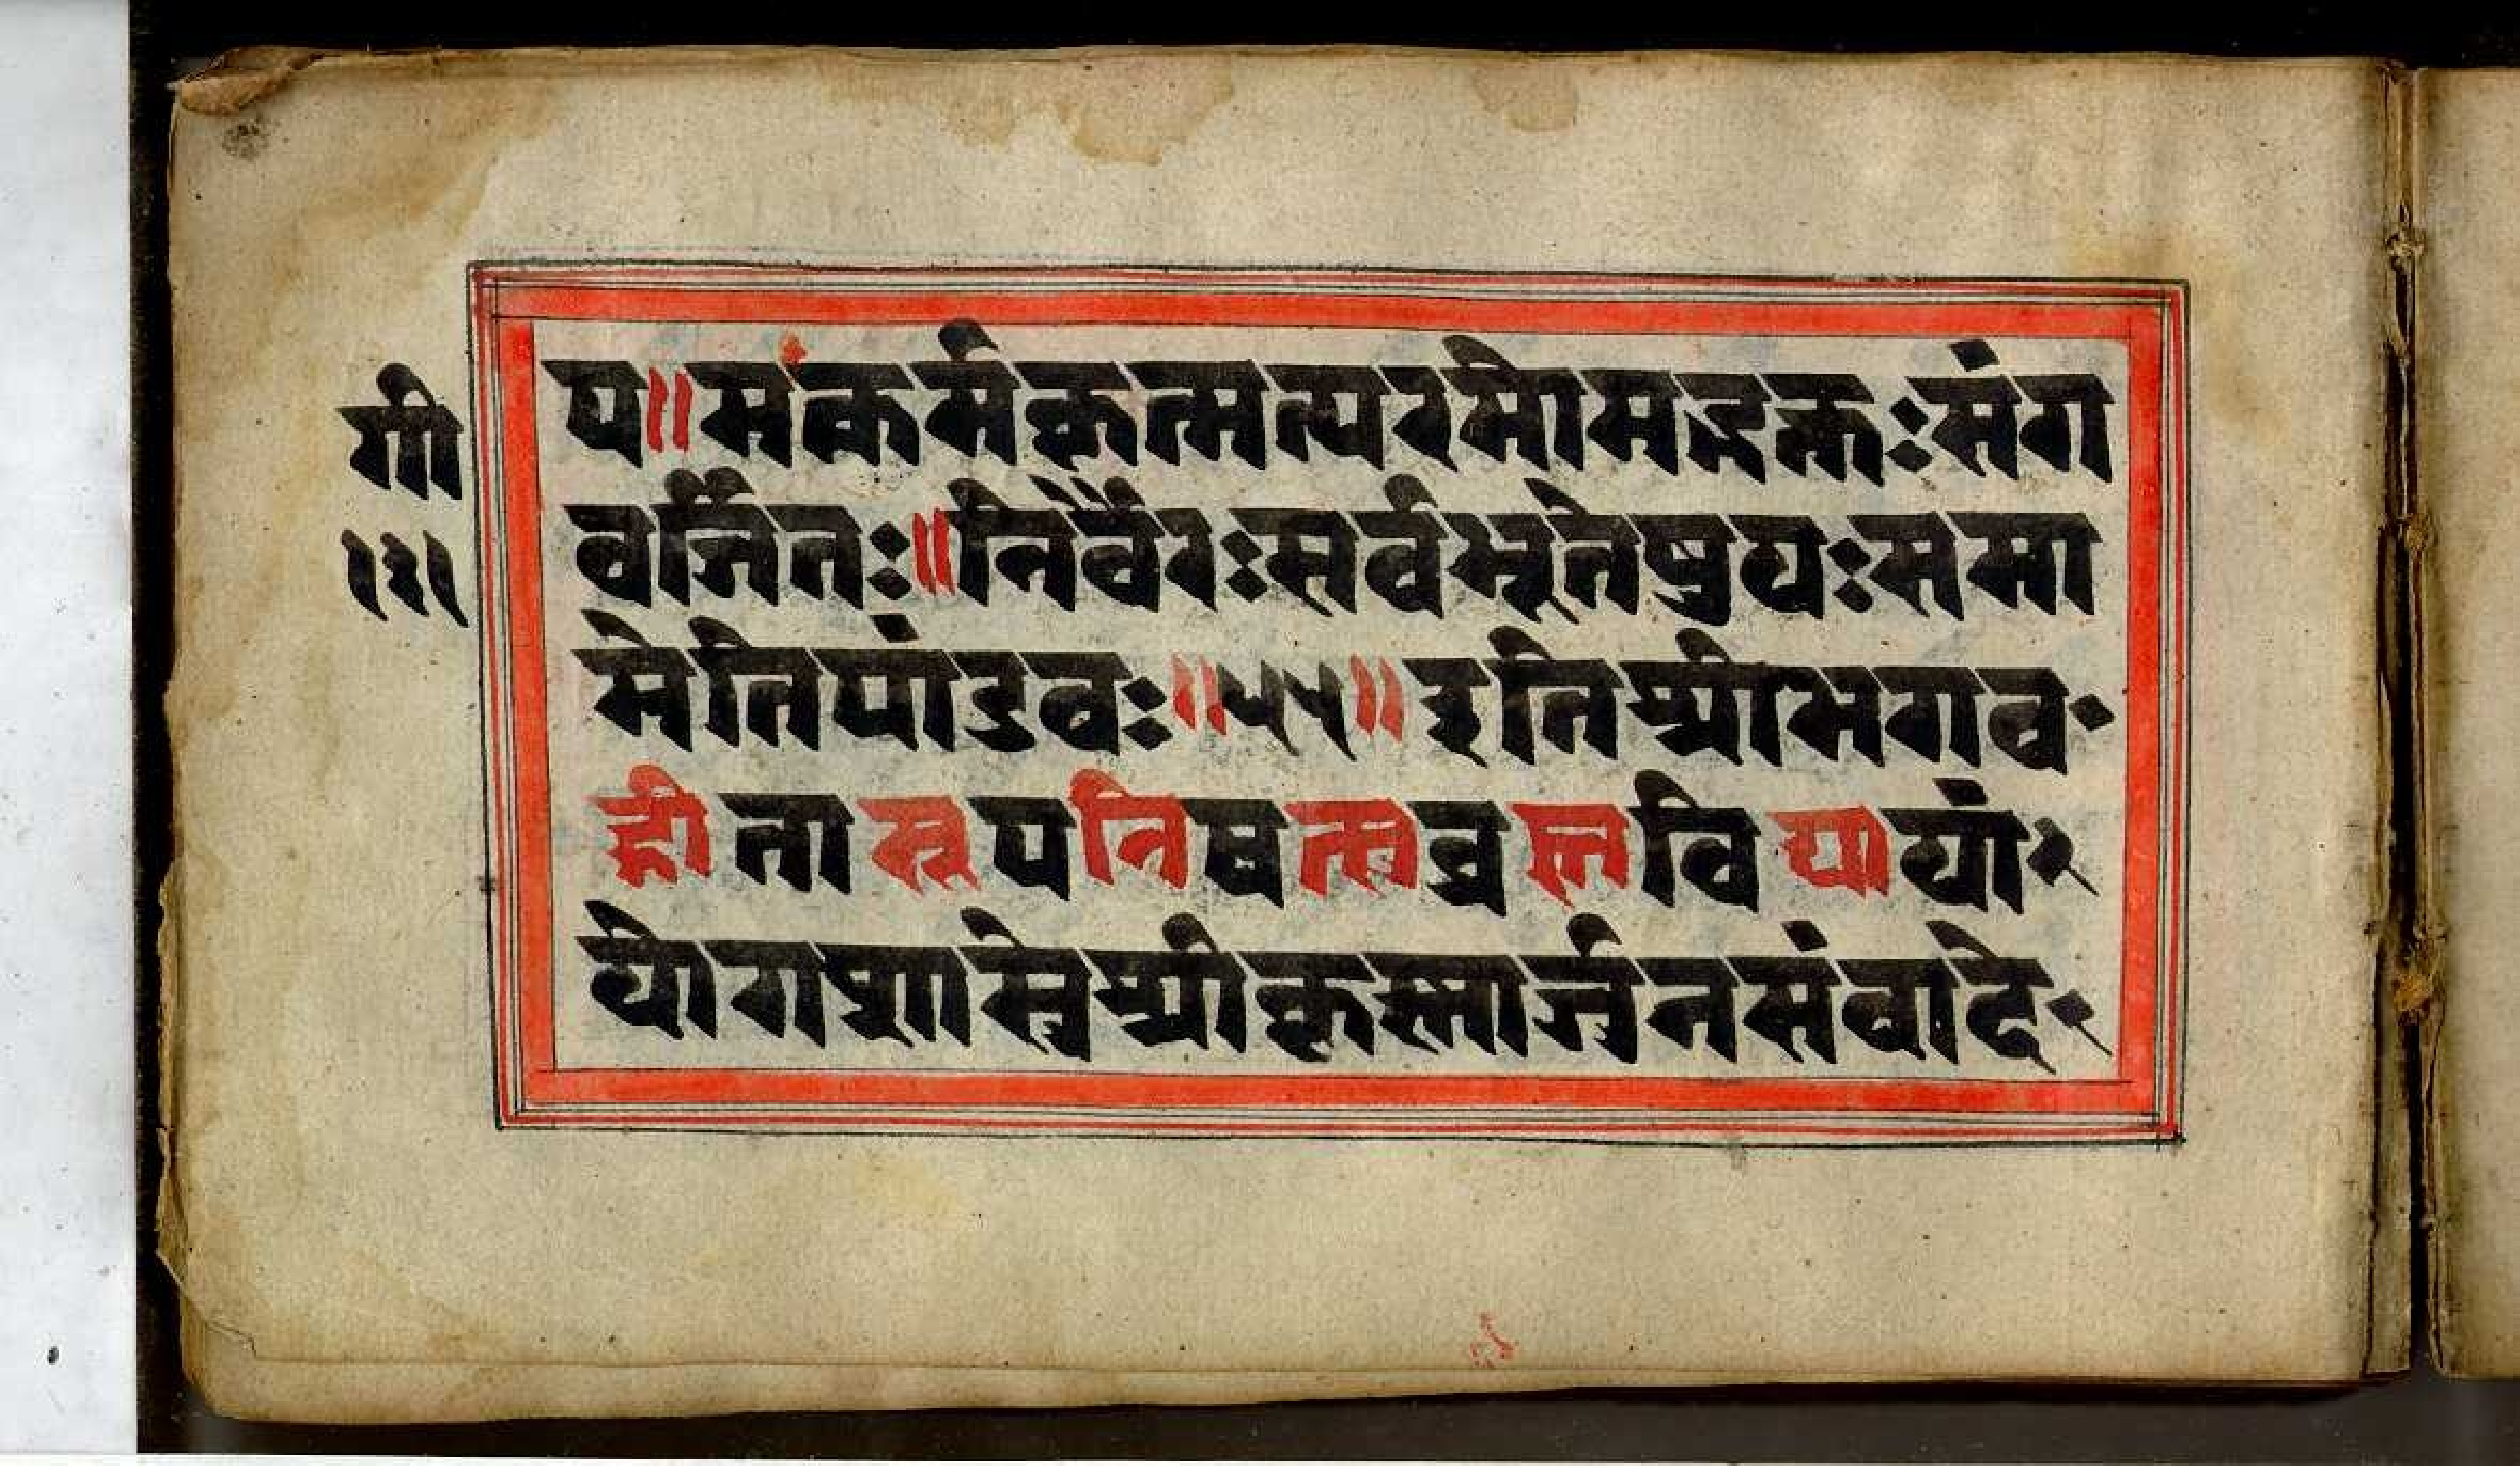 गी
१३१
प॥मंकर्मकृत्मत्परमोमद्भक्तः संग
वर्जितः॥निर्वैरः सर्वभूतेषुयः समा
मेतिपांडवः॥५५॥इतिश्रीभगव
द्गीतासूपनिषत्सुब्रह्मविद्यायां
योगशास्त्रेश्रीकृष्णार्जुनसंवादे